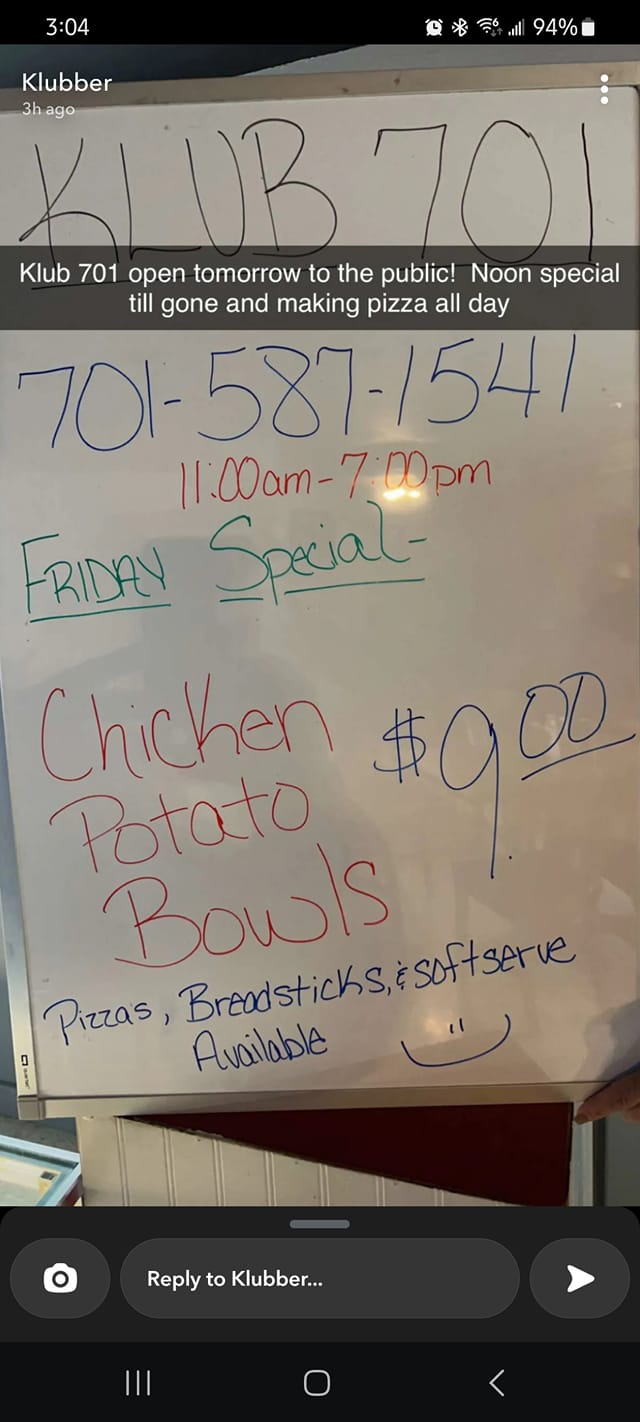 3:04 94%
Klubber
3h ago
KLUB 701
Klub 701 open tomorrow to the public! Noon special
till gone and making pizza all day
701-587-1541
11:00am-7:00pm
FRIDAY Special-
Chicken
Potato
Bowls
$9.00
Pizzas, Breadsticks, & softserve
Available
Reply to Klubber...